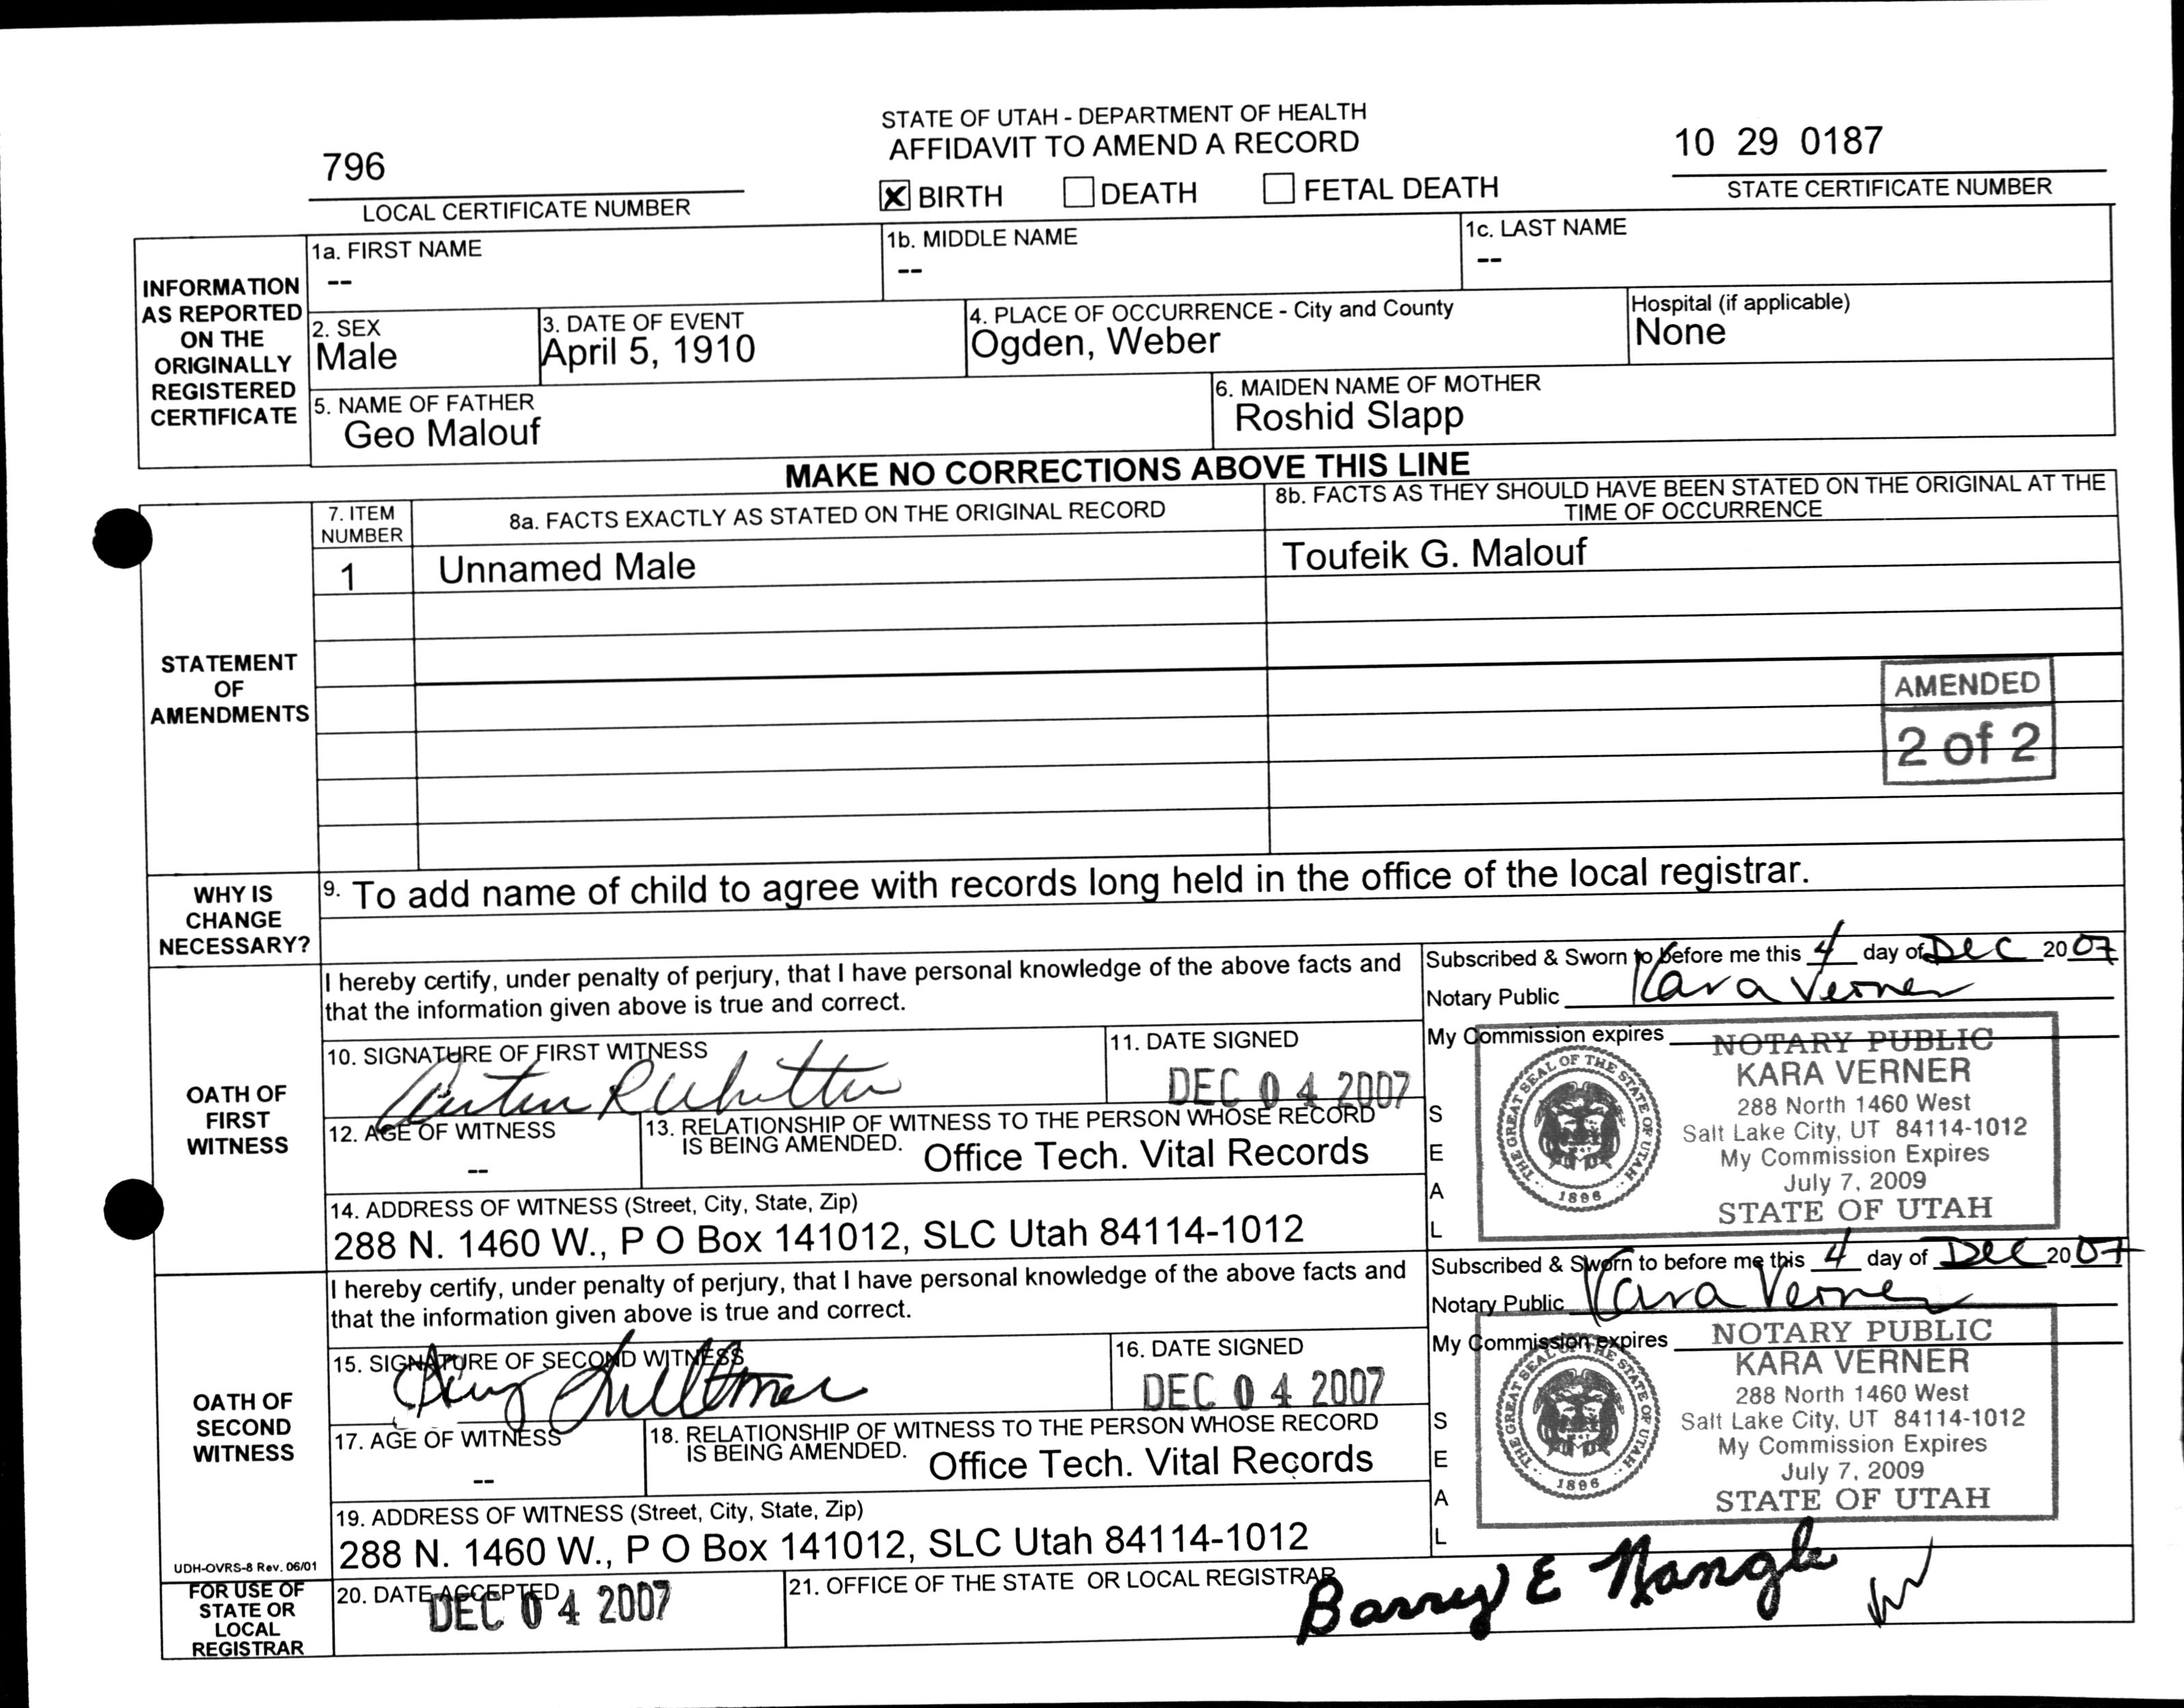 STATE OF UTAH - DEPARTMENT OF HEALTH
AFFIDAVIT TO AMEND A RECORD
796
LOCAL CERTIFICATE NUMBER
X BIRTH DEATH FETAL DEATH
10 29 0187
STATE CERTIFICATE NUMBER
INFORMATION
AS REPORTED
ON THE
ORIGINALLY
REGISTERED
CERTIFICATE
1a. FIRST NAME
--
1b. MIDDLE NAME
--
1c. LAST NAME
--
2. SEX
Male
3. DATE OF EVENT
April 5, 1910
4. PLACE OF OCCURRENCE - City and County
Ogden, Weber
Hospital (if applicable)
None
5. NAME OF FATHER
Geo Malouf
6. MAIDEN NAME OF MOTHER
Roshid Slapp
MAKE NO CORRECTIONS ABOVE THIS LINE
STATEMENT
OF
AMENDMENTS
7. ITEM
NUMBER
8a. FACTS EXACTLY AS STATED ON THE ORIGINAL RECORD
8b. FACTS AS THEY SHOULD HAVE BEEN STATED ON THE ORIGINAL AT THE
TIME OF OCCURRENCE
1 Unnamed Male Toufeik G. Malouf
AMENDED
2 of 2
WHY IS
CHANGE
NECESSARY?
9. To add name of child to agree with records long held in the office of the local registrar.
OATH OF
FIRST
WITNESS
I hereby certify, under penalty of perjury, that I have personal knowledge of the above facts and
that the information given above is true and correct.
10. SIGNATURE OF FIRST WITNESS
11. DATE SIGNED
DEC 04 2007
12. AGE OF WITNESS
--
13. RELATIONSHIP OF WITNESS TO THE PERSON WHOSE RECORD
IS BEING AMENDED. Office Tech. Vital Records
14. ADDRESS OF WITNESS (Street, City, State, Zip)
288 N. 1460 W., P O Box 141012, SLC Utah 84114-1012
Subscribed & Sworn to before me this 4 day of Dec 2007
Notary Public Kara Verner
My Commission expires
SEAL
THE GREAT SEAL OF THE STATE OF UTAH
1896
NOTARY PUBLIC
KARA VERNER
288 North 1460 West
Salt Lake City, UT 84114-1012
My Commission Expires
July 7, 2009
STATE OF UTAH
OATH OF
SECOND
WITNESS
I hereby certify, under penalty of perjury, that I have personal knowledge of the above facts and
that the information given above is true and correct.
15. SIGNATURE OF SECOND WITNESS
16. DATE SIGNED
DEC 04 2007
17. AGE OF WITNESS
--
18. RELATIONSHIP OF WITNESS TO THE PERSON WHOSE RECORD
IS BEING AMENDED. Office Tech. Vital Records
19. ADDRESS OF WITNESS (Street, City, State, Zip)
288 N. 1460 W., P O Box 141012, SLC Utah 84114-1012
Subscribed & Sworn to before me this 4 day of Dec 2007
Notary Public Kara Verner
My Commission expires
SEAL
THE GREAT SEAL OF THE STATE OF UTAH
1896
NOTARY PUBLIC
KARA VERNER
288 North 1460 West
Salt Lake City, UT 84114-1012
My Commission Expires
July 7, 2009
STATE OF UTAH
UDH-OVRS-8 Rev. 06/01
FOR USE OF
STATE OR
LOCAL
REGISTRAR
20. DATE ACCEPTED
DEC 04 2007
21. OFFICE OF THE STATE OR LOCAL REGISTRAR
Barry E Nangle